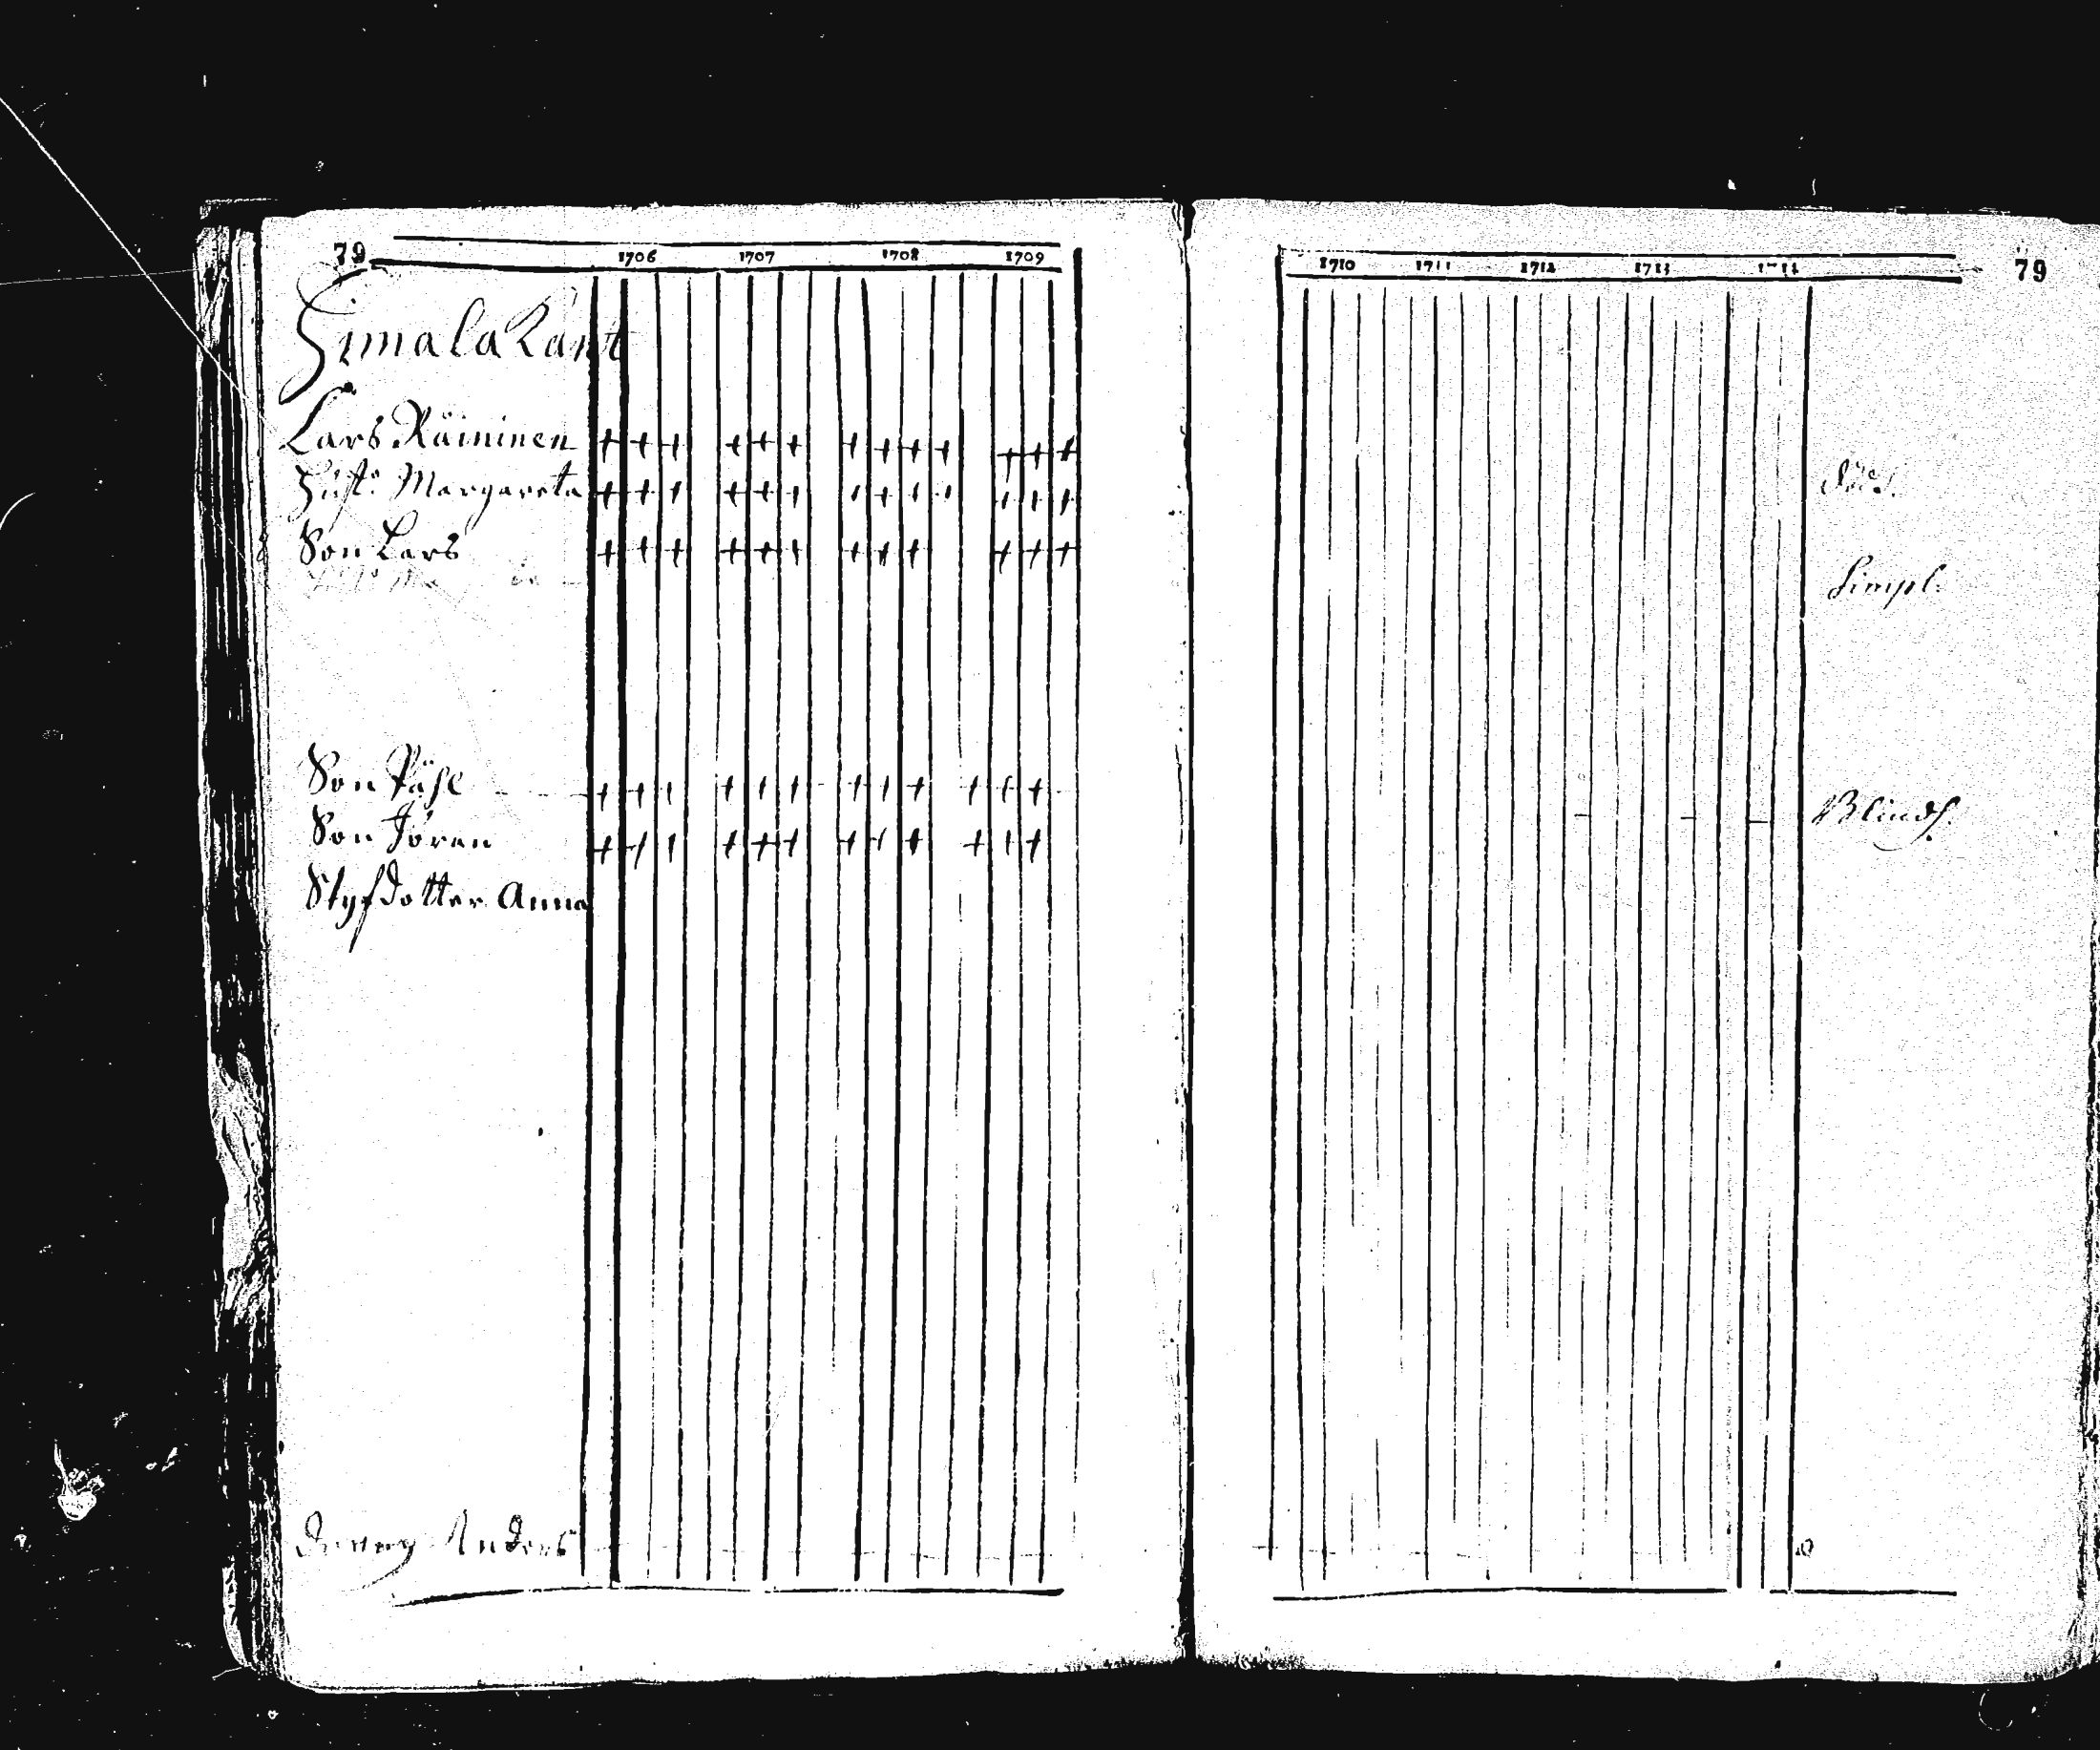 79 1706 1707 1708 1709
Himala Kant
Lars Räininen
Hust: Margareta
Son Lars
Son Påhl
Son Jören
Styfdotter Anna
Dreng Anders
1710 1711 1712 1713 1714 79
Död.
Simpl.
Blindh.